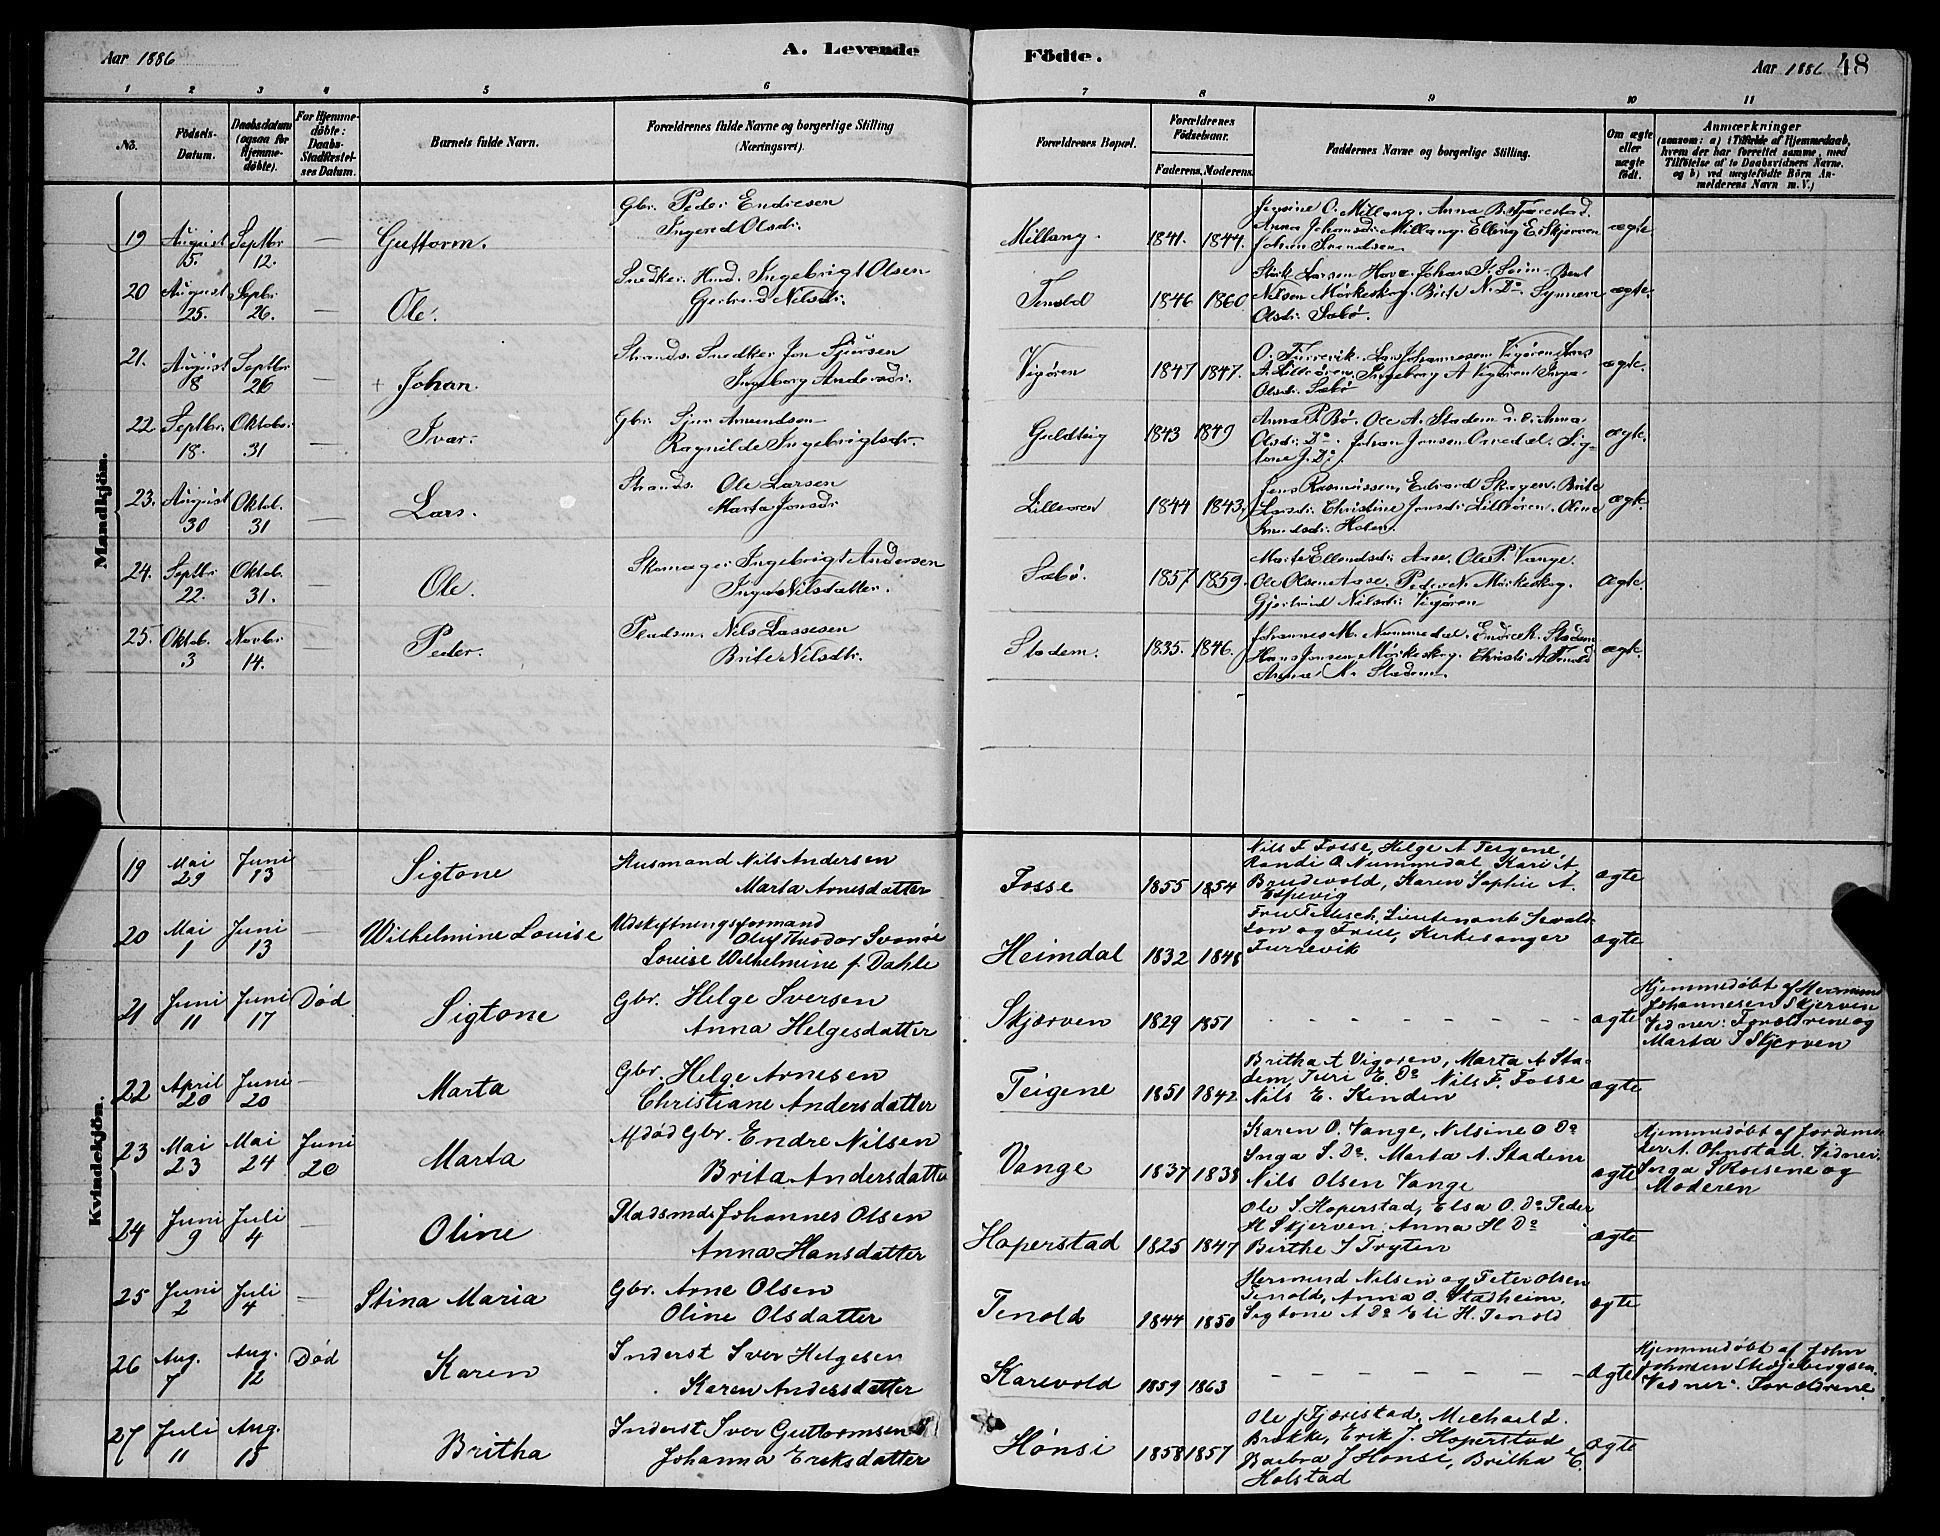 Aar 1886
A. Levende
Födte.
Aar 1886
48
1 2 3 4 5 6 7 8 9 10 11
No.
Födsels-
Datum.
Daabsdatum
(ogsaa for
Hjemme-
döbte).
For Hjemme-
döbte:
Daabs-
Stadfæstel-
ses Datum.
Barnets fulde Navn.
Forældrenes fulde Navne og borgerlige Stilling
(Næringsvei).
Forældrenes Bopæl.
Forældrenes
Födselsaar.
Faderens. Moderens.
Faddernes Navne og borgerlige Stilling.
Om ægte
eller
uægte
födt.
Anmærkninger
(saasom: a) i Tilfælde af Hjemmedaab,
hvem der har forrettet samme, med
Tilföielse af to Daabsvidners Navne,
og b) ved uægtefödte Börn An-
melderens Navn m. V.)
Mandkjön.
19 August 5. Septbr 12. — Guttorm.
Gbr. Peder Endresen
Ingered Olsdr.
Millang. 1841. 1844.
Jensine O. Millang. Anna B. Tjærestad.
Anna Johansdr. Millang. Elling E. Skjerven
Johan Svendsen
ægte
20 August 25. Septbr 26. — Ole.
Snedker. Hmd. Ingebrigt Olsen
Gjertrud Nilsdr.
Tenold 1846 1860
Larsen Hove. Johan J. Seim.
Nilsen Mörkeskog. Brite N. Do. Synneve
Olsdr. Sæbö.
ægte.
21. August 8 Septbr 26 — + Johan.
Strands. Snedker Jon Sjursen
Ingeborg Andersdr.
Vigören 1847 1847.
O. Turrevik. Lars Johannesen Vigören, Lars
A. Lilleören. Ingeborg A Vigören. Inga
Olsdr. Sæbö
ægte.
22 Septbr. 18. Oktobr. 31 — Ivar.
Gbr. Sjur Amundsen
Ragnilde Ingebrigtsdr.
Guldteig 1843 1849
Anna P. Bö. Ole A. Stadem Anna
Olsdr. Do. Johan Jonsen Sig-
tone J. Do.
ægte.
23. August 30 Oktob. 31 — Lars.
Strands. Ole Larsen
Marta Jonsdr
Lilleören 1844 1843.
Jens Rasmussen, Edvard Skagen. Brite
Larsdr. Christine Jonsdr. Lilleören. Oline
Knudsdr. Holen.
ægte.
24. Septbr 22. Oktob. 31. — Ole.
Skomager Ingebrigt Andersen
Inger Nilsdatter.
Sæbö. 1857 1859.
Marte Ellendsdr. Aase. Ole P. Vange.
Ole Olsen Aase. Peder N. Mörkeskog.
Gjertrud Nilsdr. Vigören
ægte.
25. Oktob. 3 Novbr 14. — Peder.
Pladsm. Nils Lassesen
Brite Nilsdtr.
Stadem. 1835. 1846.
Johannes M. Nummedal. Endre K. Stadem
Hans Jonsen Mörkeskog. Christi A. Tenold
Anna M. Stadem.
ægte.
Kvindekjön.
19 Mai 29 Juni 13 — Sigtone
Husmand Nils Andersen
Marta Arnesdatter
Fosse 1855 1854
Nils F Fosse, Helge A Teigene
Randi A Nummedal Kari A
Brudevold, Karen Sophie A.
Espevig
ægte
20 Mai 1 Juni 13 — Wilhelmine Louise
Udskiftningsformand
Oluf Theodor Svanöe
Louise Wilhelmine f. Dahle
Heimdal 1832 1848
Fru Lieutenant Sevald-
son og Frue, Kirkesanger
Turrevik
ægte
21 Juni 11 Juni 17 Död Sigtone
Gbr. Helge Iversen
Anna Helgesdatter
Skjærven 1829 1851
- - - - - - - -
ægte
Hjemmedöbt af Hermund
Johannesen Skjerven
Vidner: Forældrene og
Marta I Skjerven
22 April 20 Juni 20 — Marta
Gbr. Helge Arnesen
Christiane Andersdatter
Teigene 1851 1842
Britha A Vigoren, Marta A Sta-
dem, Turi E. Do Nils F. Fosse
Nils E. Kinden
ægte
23 Mai 23 Mai 24 Juni 20 Marta
Afdöd Gbr. Endre Nilsen
Brita Andersdatter
Vange 1837 1838
Karen O. Vange, Nilsine O Do
Inga S. Do. Marta A. Stadem
Nils Olsen Vange
ægte
Hjemmedöbt af Jordemo-
der A. Ohnstad. Vidner.
Inga S Roesene og
Moderen
24 Juni 9 Juli 4 — Oline
Pladsmd. Johannes Olsen
Anna Hansdatter
Hoperstad 1825 1847
Ole I. Hoperstad, Elsa O. Do Peder
H Skjerven. Anna H Do
Birthe I Tryten
ægte
25 Juni 2 Juli 4 — Stina Maria
Gbr. Arne Olsen
Oline Olsdatter
Tenold 1844 1850
Hermund Nilsen og Peter Olsen
Tenold, Anna O. Stadheim,
Sigtone A Do Eli H. Tenold
ægte
26 Aug. 7 Aug. 12 Död Karen
Inderst Iver Helgesen
Karen Andersdatter
Karevold 1859 1863
- - - - - - - -
ægte
Hjemmedöbt af John
Johnsen Skojebergsen
Vidner: Forældrene
27 Juli 11 Aug. 15 Britha
Inderst Iver Guttormsen
Johanna Eriksdatter
Hönsi 1858 1857
Ole J Tjærestad, Michael L.
Brekke, Erik J. Hoperstad
Barbra J Hönsi, Britha E.
Holstad
ægte